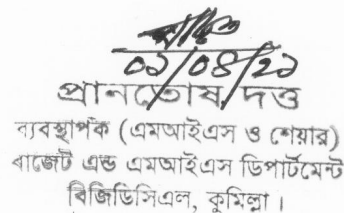 ০১/০৪/২১
প্রানতোষ দত্ত
ব্যবস্থাপক (এমআইএস ও শেয়ার)
বাজেট এন্ড এমআইএস ডিপার্টমেন্ট
বিজিডিসিএল, কুমিল্লা।